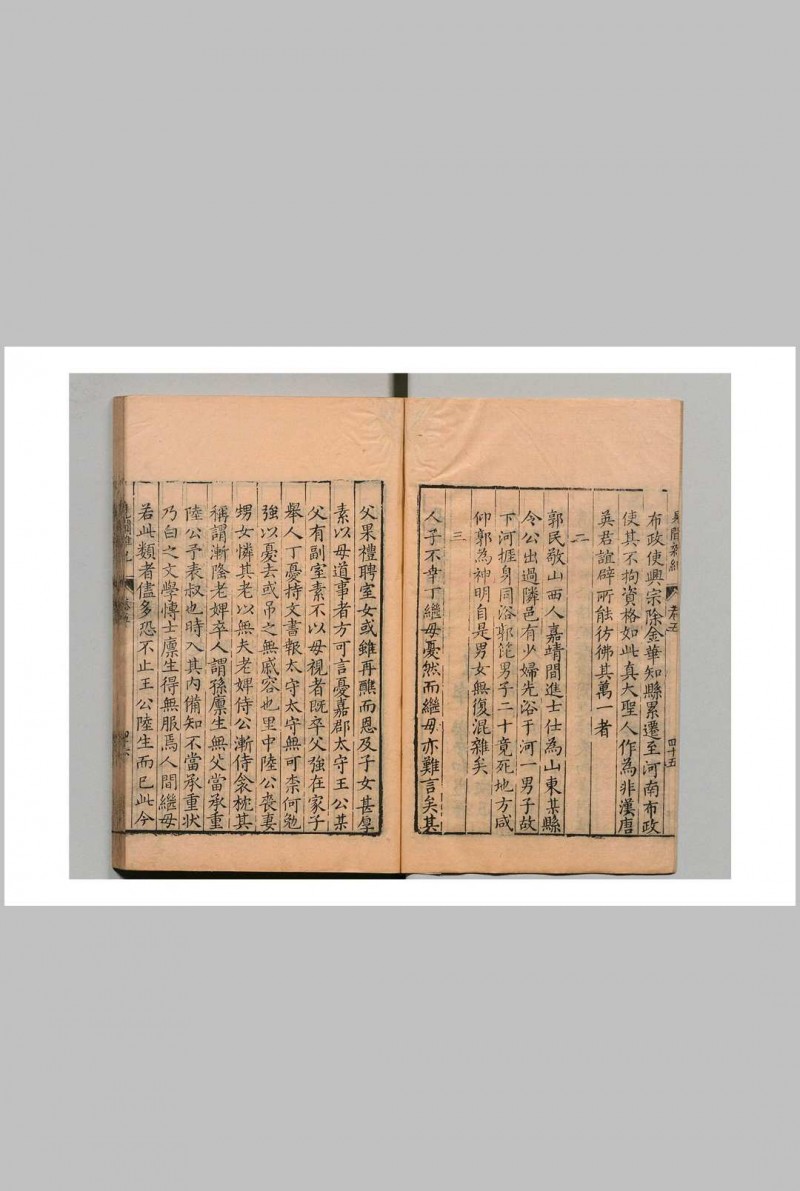 見聞雜紀 卷五 四十五
布政使興宗除金華知縣累遷至河南布政
使其不拘資格如此真大聖人作為非漢唐
吳君誼辟所能彷彿其萬一者
二
郭民敬山西人嘉靖間進士仕為山東某縣
令公出過隣邑有少婦先浴于河一男子故
下河捱身同浴郭笞男子二十竟死地方咸
仰郭為神明自是男女無復混雜矣
三
人子不幸丁繼母憂然而繼母亦難言矣其
父果禮聘室女或雖再醮而恩及子女甚厚
素以母道事者方可言憂嘉郡太守王公某
父有副室素不以母視者既卒父強在家子
舉人丁憂持文書報太守太守無可柰何勉
強以憂去或弔之無戚容也里中陸公喪妻
甥女憐其老以無夫老婢侍公漸侍衾枕其
稱謂漸隆老婢卒人謂孫廪生無父當承重
陸公予表叔也時入其內備知不當承重狀
乃白之文學博士廪生得無服焉人間繼母
若此類者儘多恐不止王公陸生而已此今